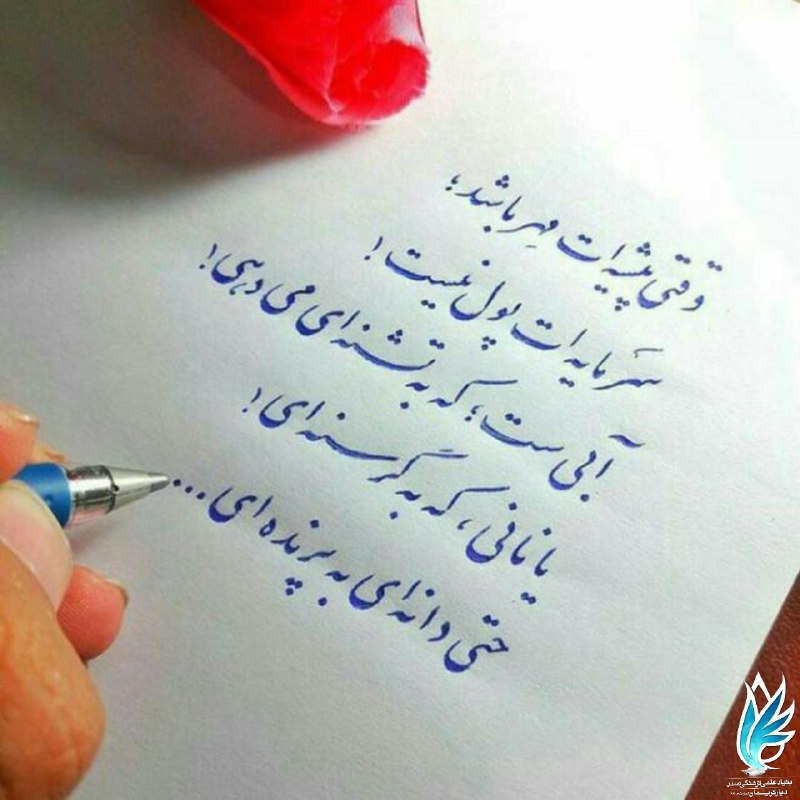 وقتی پیشه‌ات مِهر باشد؛
سَرمایه‌ات پول نیست!
آبی‌ست، که به تشنه‌ای می‌دهی!
یا نانی، که به گُرسنه‌ای!
حتی دانه‌ای به پرنده‌ای...
بنیاد علمی فرهنگی